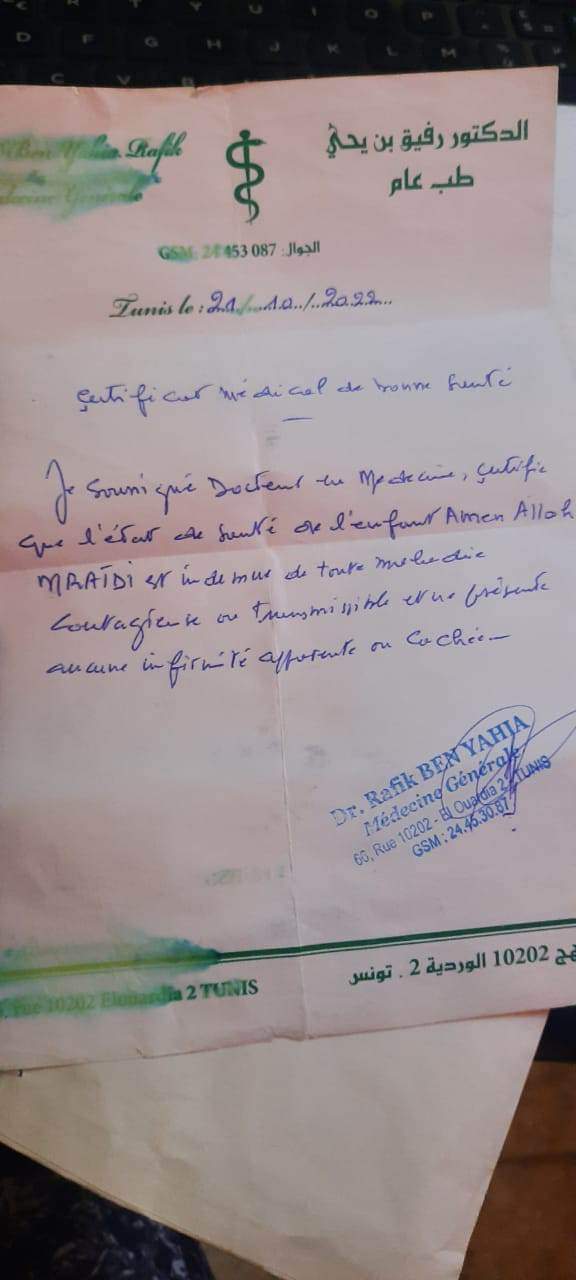 Ben Yahia Rafik
الدكتور رفيق بن يحيَ
طب عام
Médecine Générale
GSM: 24 453 087 :الجوال
Tunis le : 21/10/2022
Certificat médical de bonne santé
Je soussigné Docteur en Medecine, certifie
que l'état de santé de l'enfant Amen Allah
MRAÏDI est indemne de toute maladie
contagieuse ou transmissible et ne présente
aucune infirmité apparente ou cachée
Dr. Rafik BEN YAHIA
Médecine Générale
60, Rue 10202 - El Ouardia 2 TUNIS
GSM : 24.45.30.87
rue 10202 Elouardia 2 TUNIS
نهج 10202 الوردية 2 . تونس